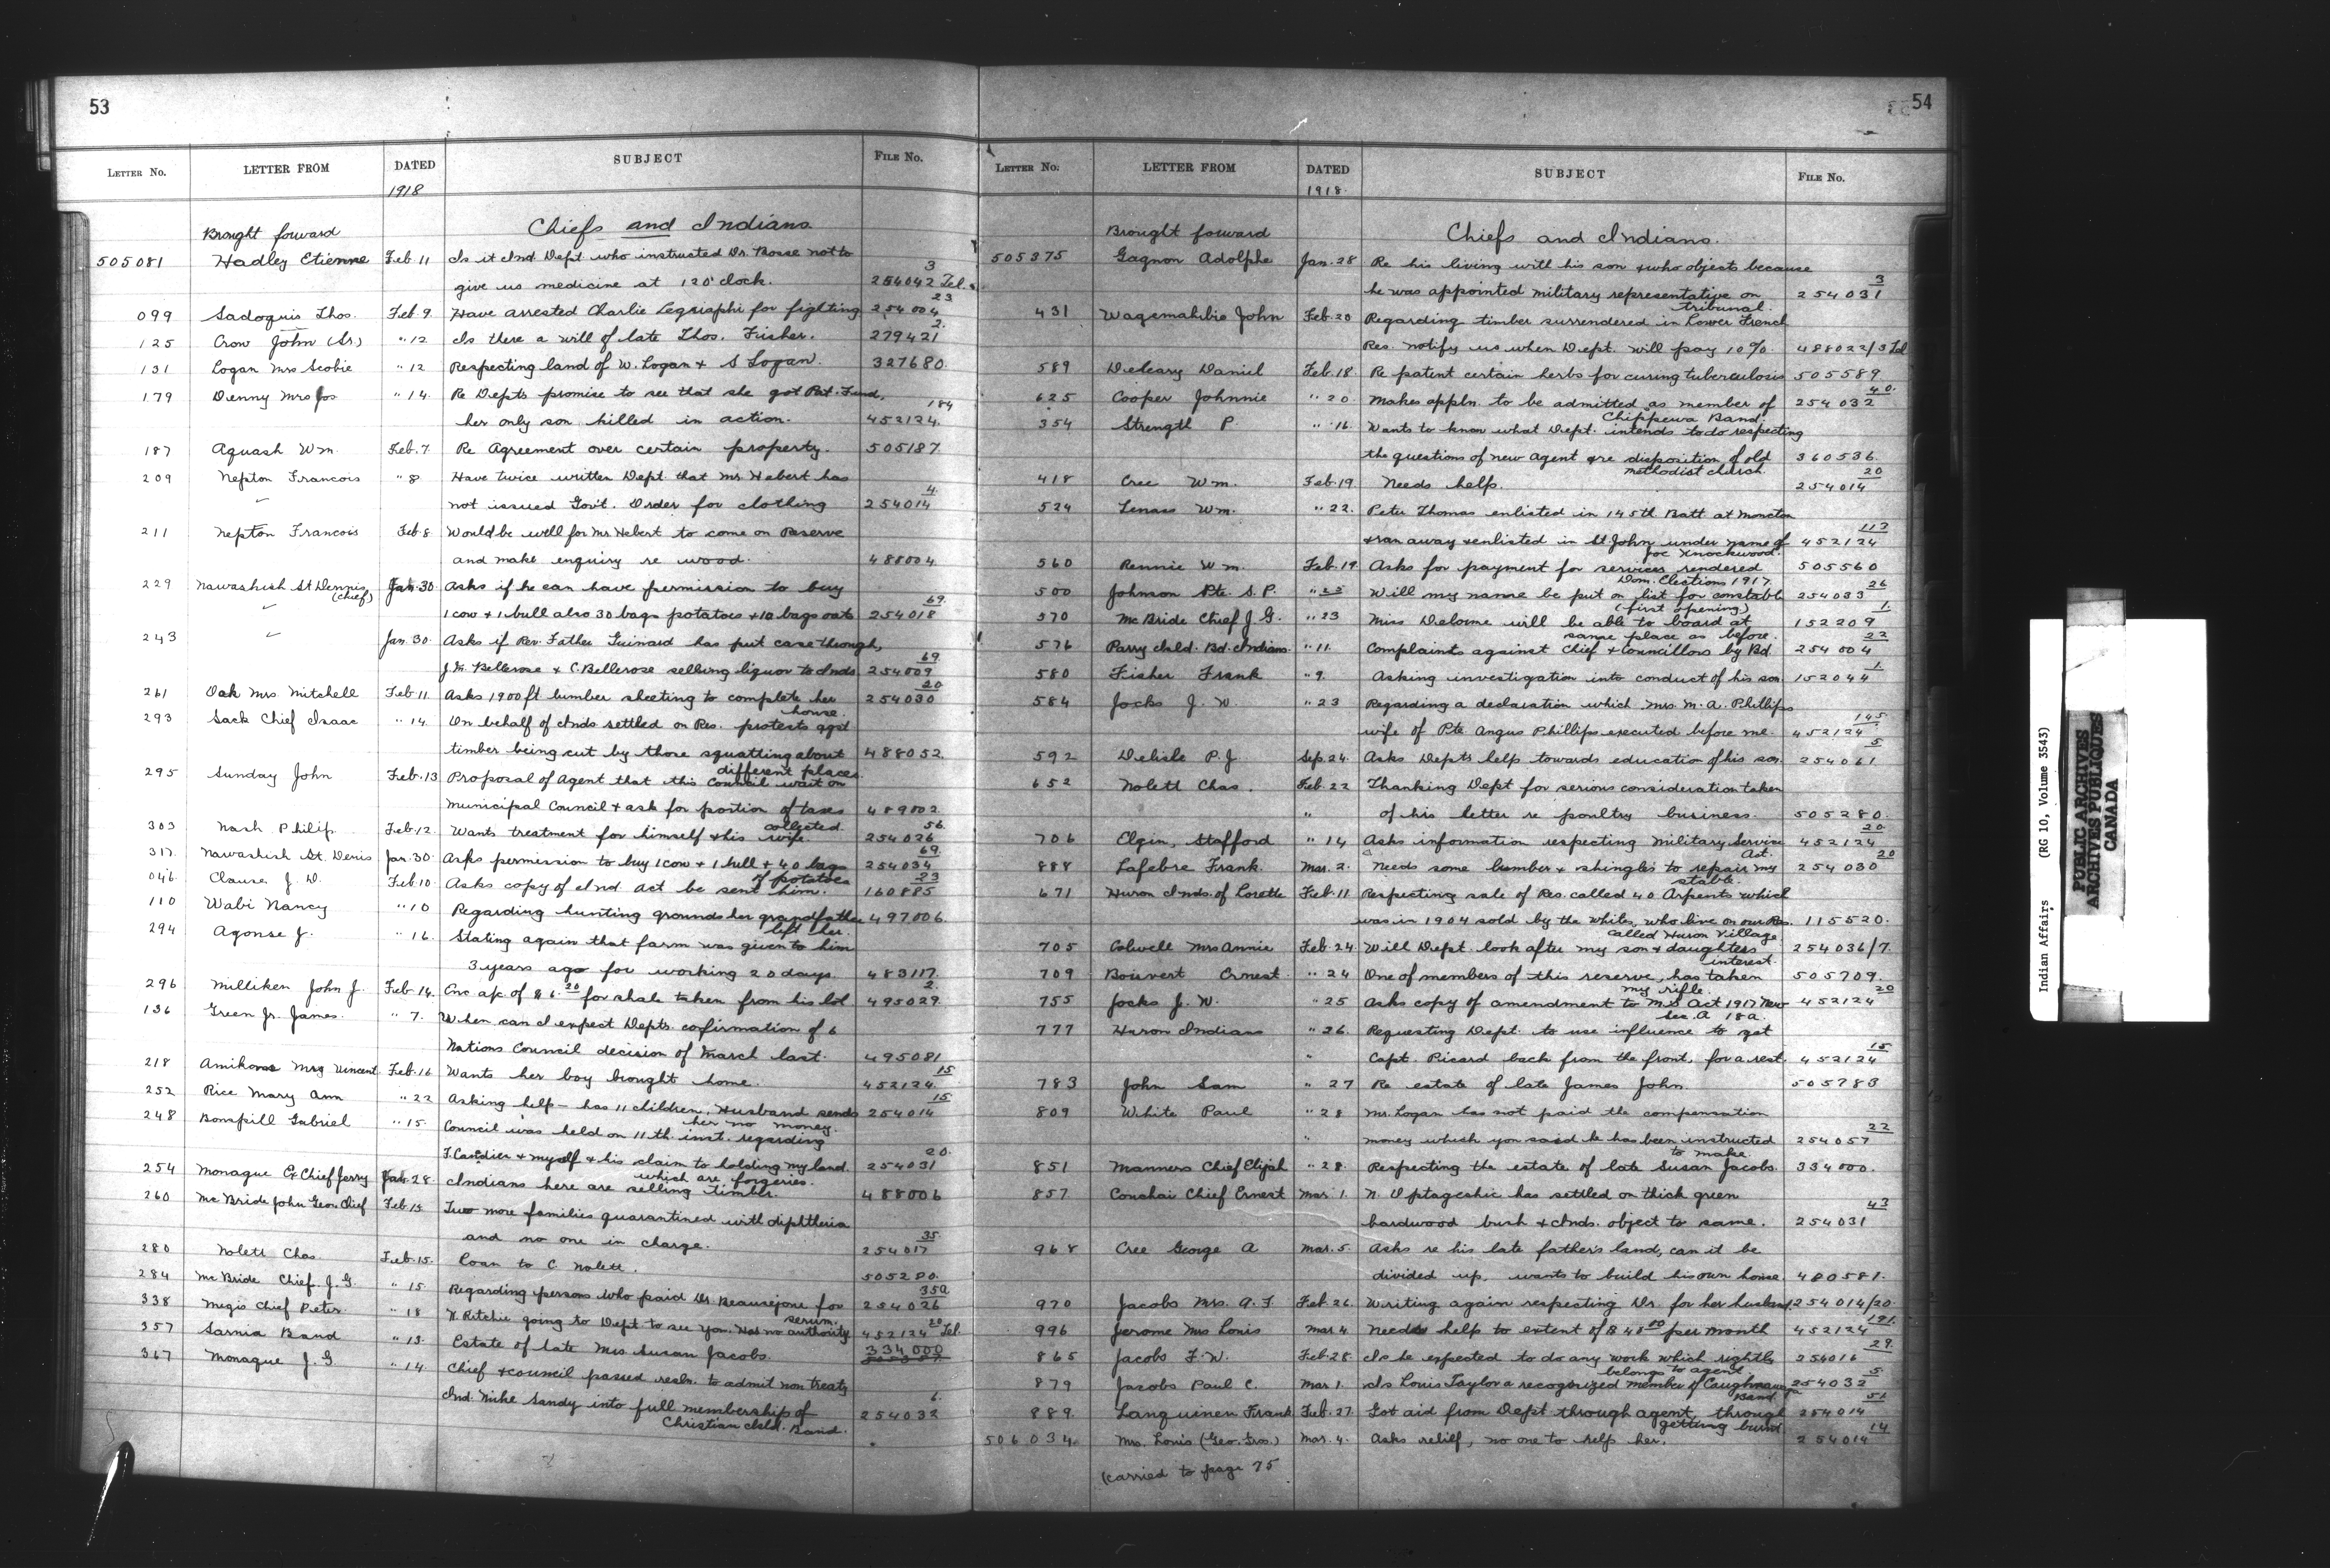 53
LETTER NO. LETTER FROM DATED SUBJECT FILE NO.
1918
Brought forward Chiefs and Indians
505081 Hadley Etienne Feb 11 Is it Ind Dept who instructed Dr. Bosse not to
give us medicine at 12 o'clock. 254042 3 Tel.
099 Sadoquis Thos. Feb. 9. Have arrested Charlie for fighting 254004 23
125 Crow John (Sr.) " 12 Is there a will of late Thos. Fisher. 279421 2.
131 Logan Mrs Scobie " 12 Respecting land of W. Logan + S Logan. 327680.
179 Denny Mrs Jos " 14. Re Depts promise to see that she got Pat. Fund.
her only son killed in action. 452124. 184
187 Aquash Wm. Feb. 7. Re Agreement over certain property. 505187.
209 Nepton Francois " 8 Have twice written Dept that Mr. Hebert has
not issued Gov't. Order for clothing 254014 4.
211 Nepton Francois Feb. 8 Would be well for Mr. Hebert to come on Reserve
and make enquiry re wood. 488004.
229 Nawashish St Dennis (Chief) Jan. 30. Asks if he can have permission to buy
1 cow + 1 bull also 30 bags potatoes + 10 bags oats 254018 69.
243 " Jan. 30. Asks if Rev. Father Guinard has put case through,
J.M. Bellerose + C. Bellerose selling liquor to Inds 254009 69.
261 Oak Mrs Mitchell Feb. 11 Asks 1900 ft lumber sheeting to complete her house. 254030 20
293 Sack Chief Isaac " 14. On behalf of Inds settled on Res. protests agst
timber being cut by those squatting about different places 488052.
295 Sunday John Feb. 13 Proposal of Agent that this Council wait on
Municipal Council + ask for portion of taxes collected. 489002.
303 Nash Philip Feb. 12. Wants treatment for himself + his wife. 254026 56.
317. Nawashish St. Denis Jan. 30. Asks permission to buy 1 cow + 1 bull + 40 bags of potatoes 254034 69.
046 Clause J. D. Feb. 10. Asks copy of Ind act be sent him. 160885 23
110 Wabi Nancy " 10 Regarding hunting grounds her grandfather left her. 497006.
294 Agonse J. " 16. Stating again that farm was given to him
3 years ago for working 20 days. 483117.
296 Milliken John J. Feb. 14. Enc a/c of $6.20 for shale taken from his lot 495029. 2.
136 Green Jr. James. " 7. When can I expect Depts. confirmation of 6
Nations Council decision of March last. 495081
218 Mrs Vincent Feb. 16 Wants her boy brought home. 452124. 15
252 Rice Mary Ann " 22 Asking help - has 11 children. Husband sends her no money. 254014 15
248 Bonspill Gabriel " 15. Council was held on 11 th. inst. regarding
+ myself + his claim to holding my land. which are forgeries. 254031 20.
254 Monague Ex Chief Jerry Jan. 28. Indians here are selling timber. 488006
260 Mc Bride John Geo. Chief Feb. 15 Two more families quarantined with diphtheria
and no one in charge. 254017 35.
280 Nolett Chas. Feb. 15. Loan to C Nolett. 505280.
284 Mc Bride Chief J. G. " 15 Regarding persons who paid Dr Beausejour for serum. 254026 35a
338 Megis Chief Peter. " 18 N. Ritchie going to Dept to see you. Has no authority 452124 20 Tel.
357 Sarnia Band " 13. Estate of late Mrs Susan Jacobs. 334000
367 Monague J. G. " 14. Chief + council passed resln. to admit non treaty
Ind. Mike Sandy into full membership of Christian Isld. Band. 254032 6.
54
LETTER NO. LETTER FROM DATED SUBJECT FILE NO.
1918.
Brought forward Chiefs and Indians.
505375 Gagnon Adolphe Jan. 28 Re his living with his son + who objects because
he was appointed military representative on tribunal. 254031 3
431 Wagemahibie John Feb. 20 Regarding timber surrendered in Lower French
Res. notify us when Dept. will pay 10%. 488022/3 Tel
589 Deleary Daniel Feb. 18. Re patent certain herbs for curing tuberculosis 505589.
625 Cooper Johnnie " 20. Makes appln. to be admitted as member of Chippewa Band. 254032 40.
354 Strength P. " 16. Wants to know what Dept. intends to do respecting
the questions of new agent + re disposition of old methodist church. 360536.
418 Cree Wm. Feb. 19 Needs help. 254014 20
524 Lenass Wm. " 22. Peter Thomas enlisted in 145th Batt. at Moncton
+ ran away + enlisted in St John under name of Joe Knockwood. 452124 113
560 Rennie Wm. Feb. 19. Asks for payment for services rendered Dom. Elections 1917. 505560
500 Johnson Pte. S. P. Will my name be put on list for constable (first opening) 254033 26
570 Mc Bride Chief J. G. " 23 Miss Delorme will be able to board at same place as before. 152209 1.
576 Parry Isld. Bd. Indians. " 11. Complaints against Chief + Councillors by Bd. 254004 22
580 Fisher Frank " 9. Asking investigation into conduct of his son. 152044 1.
584 Jocks J. W " 23 Regarding a declaration which Mrs. M. A. Phillips
wife of Pte Angus Phillips executed before me. 452124 145
592 Delisle P. J. Sep. 24. Asks Depts help towards education of his son. 254061 5
652 Nolett Chas. Feb. 22 Thanking Dept for serious consideration taken
" of his letter re poultry business. 505280.
706 Elgin, Stafford " 14 Asks information respecting Military Service Act. 452124 20.
888 Lafebre Frank. Mar. 2. Needs some lumber + shingles to repair my stable. 254030 20
671 Huron Inds. of Lorette Feb. 11 Respecting sale of Res. called 40 Arpents which
was in 1904 sold by the whites, who live on our Res. called Huron Village. 115520.
705 Colwell Mrs Annie Feb. 24. Will Dept. look after my son + daughters interest. 254036/7.
709 Boisvert Ernest. " 24 One of members of this reserve, has taken my rifle. 505709.
755 Jocks J. W. " 25 Asks copy of amendment to M.S Act 1917 New Sec. A 18a. 452124 20
777 Huron Indians " 26. Requesting Dept. to use influence to get
" Capt. Picard back from the front, for a rest. 452124 15
783 John Sam " 27 Re estate of late James John. 505783
809 White Paul " 28 Mr. Logan has not paid the compensation
" money which you said he has been instructed to make. 254057 22
851 Manners Chief Elijah " 28. Respecting the estate of late Susan Jacobs. 334000.
857 Chief Ernest Mar. 1. N. Optageshic has settled on thick green
hardwood bush + Inds. object to same. 254031 43
968 Cree George A Mar. 5. Asks re his late father's land, can it be
divided up, wants to build his own house. 480581.
970 Jacobs Mrs. A. F Feb 26. Writing again respecting Dr. for her husband 254014/20.
996 Jerome Mrs Louis Mar 4 Needs help to extent of $48.00 per month 452124 191.
865 Jacobs F. W. Feb. 28. Is he expected to do any work which rightly belongs to agent. 254016 29.
879 Jacobs Paul C. Mar. 1. Is Louis Taylor a recognized member of Caughnawaga Band 254032 5.
889. Languinen Frank Feb. 27. Got aid from Dept through agent, through getting burnt. 254014 51
506034. Mrs. Louis (Geo. Gros.) Mar. 4. Asks relief, no one to help her. 254014 14
(carried to page 75
Indian Affairs (RG 10, Volume 3543)
PUBLIC ARCHIVES
ARCHIVES PUBLIQUES
CANADA